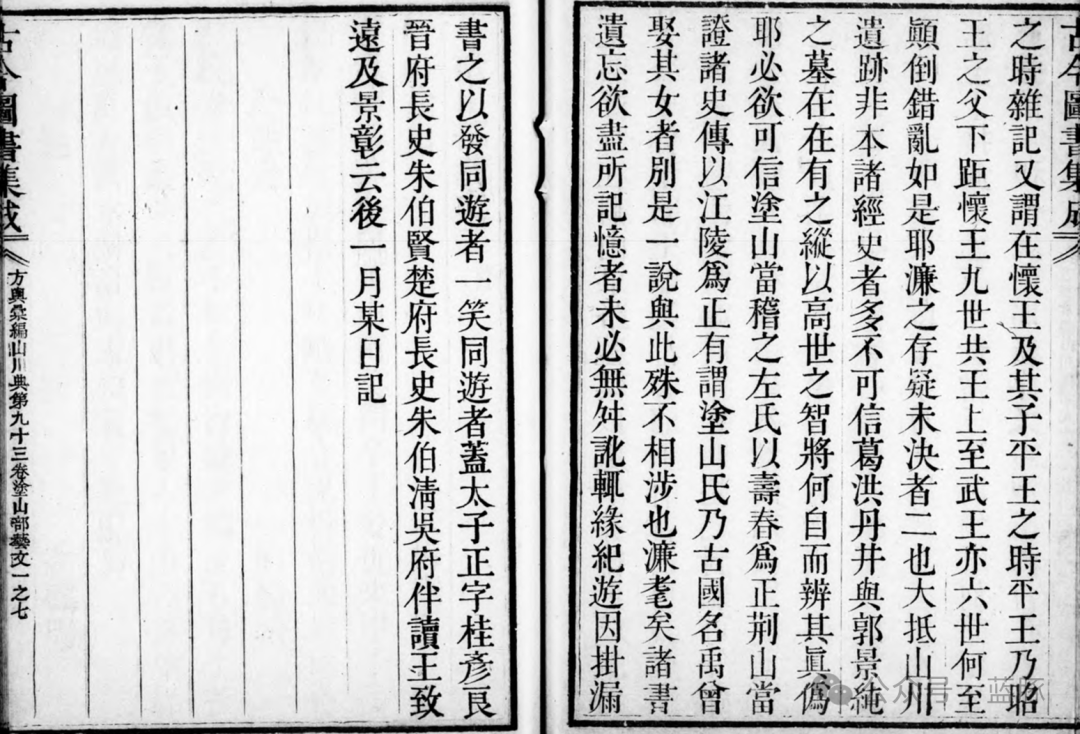 古今圖書集成
之時雜記又謂在懷王及其子平王之時平王乃昭
王之父下距懷王九世共王上至武王亦六世何至
顛倒錯亂如是耶濂之存疑未決者二也大抵山川
遺跡非本諸經史者多不可信葛洪丹井與郭景純
之墓在在有之縱以高世之智將何自而辨其眞僞
耶必欲可信塗山當稽之左氏以壽春爲正荆山當
證諸史傳以江陵爲正有謂塗山氏乃古國名禹曾
娶其女者別是一說與此殊不相涉也濂耄矣諸書
遺忘欲盡所記憶者未必無舛訛輒緣紀遊因掛漏
書之以發同遊者一笑同遊者蓋太子正字桂彥良
晉府長史朱伯賢楚府長史朱伯淸吳府伴讀王致
遠及景彰云後一月某日記
古今圖書集成
方輿彙編山川典第九十三卷塗山部藝文一之七
公众号 · 蓝啄